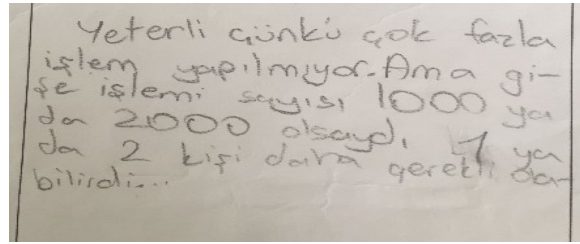 Yeterli çünkü çok fazla
işlem yapılmıyor. Ama gi-
şe işlemi sayısı 1000 ya
da 2000 olsaydı, 1 ya
da 2 kişi daha gerekli
bilirdi...